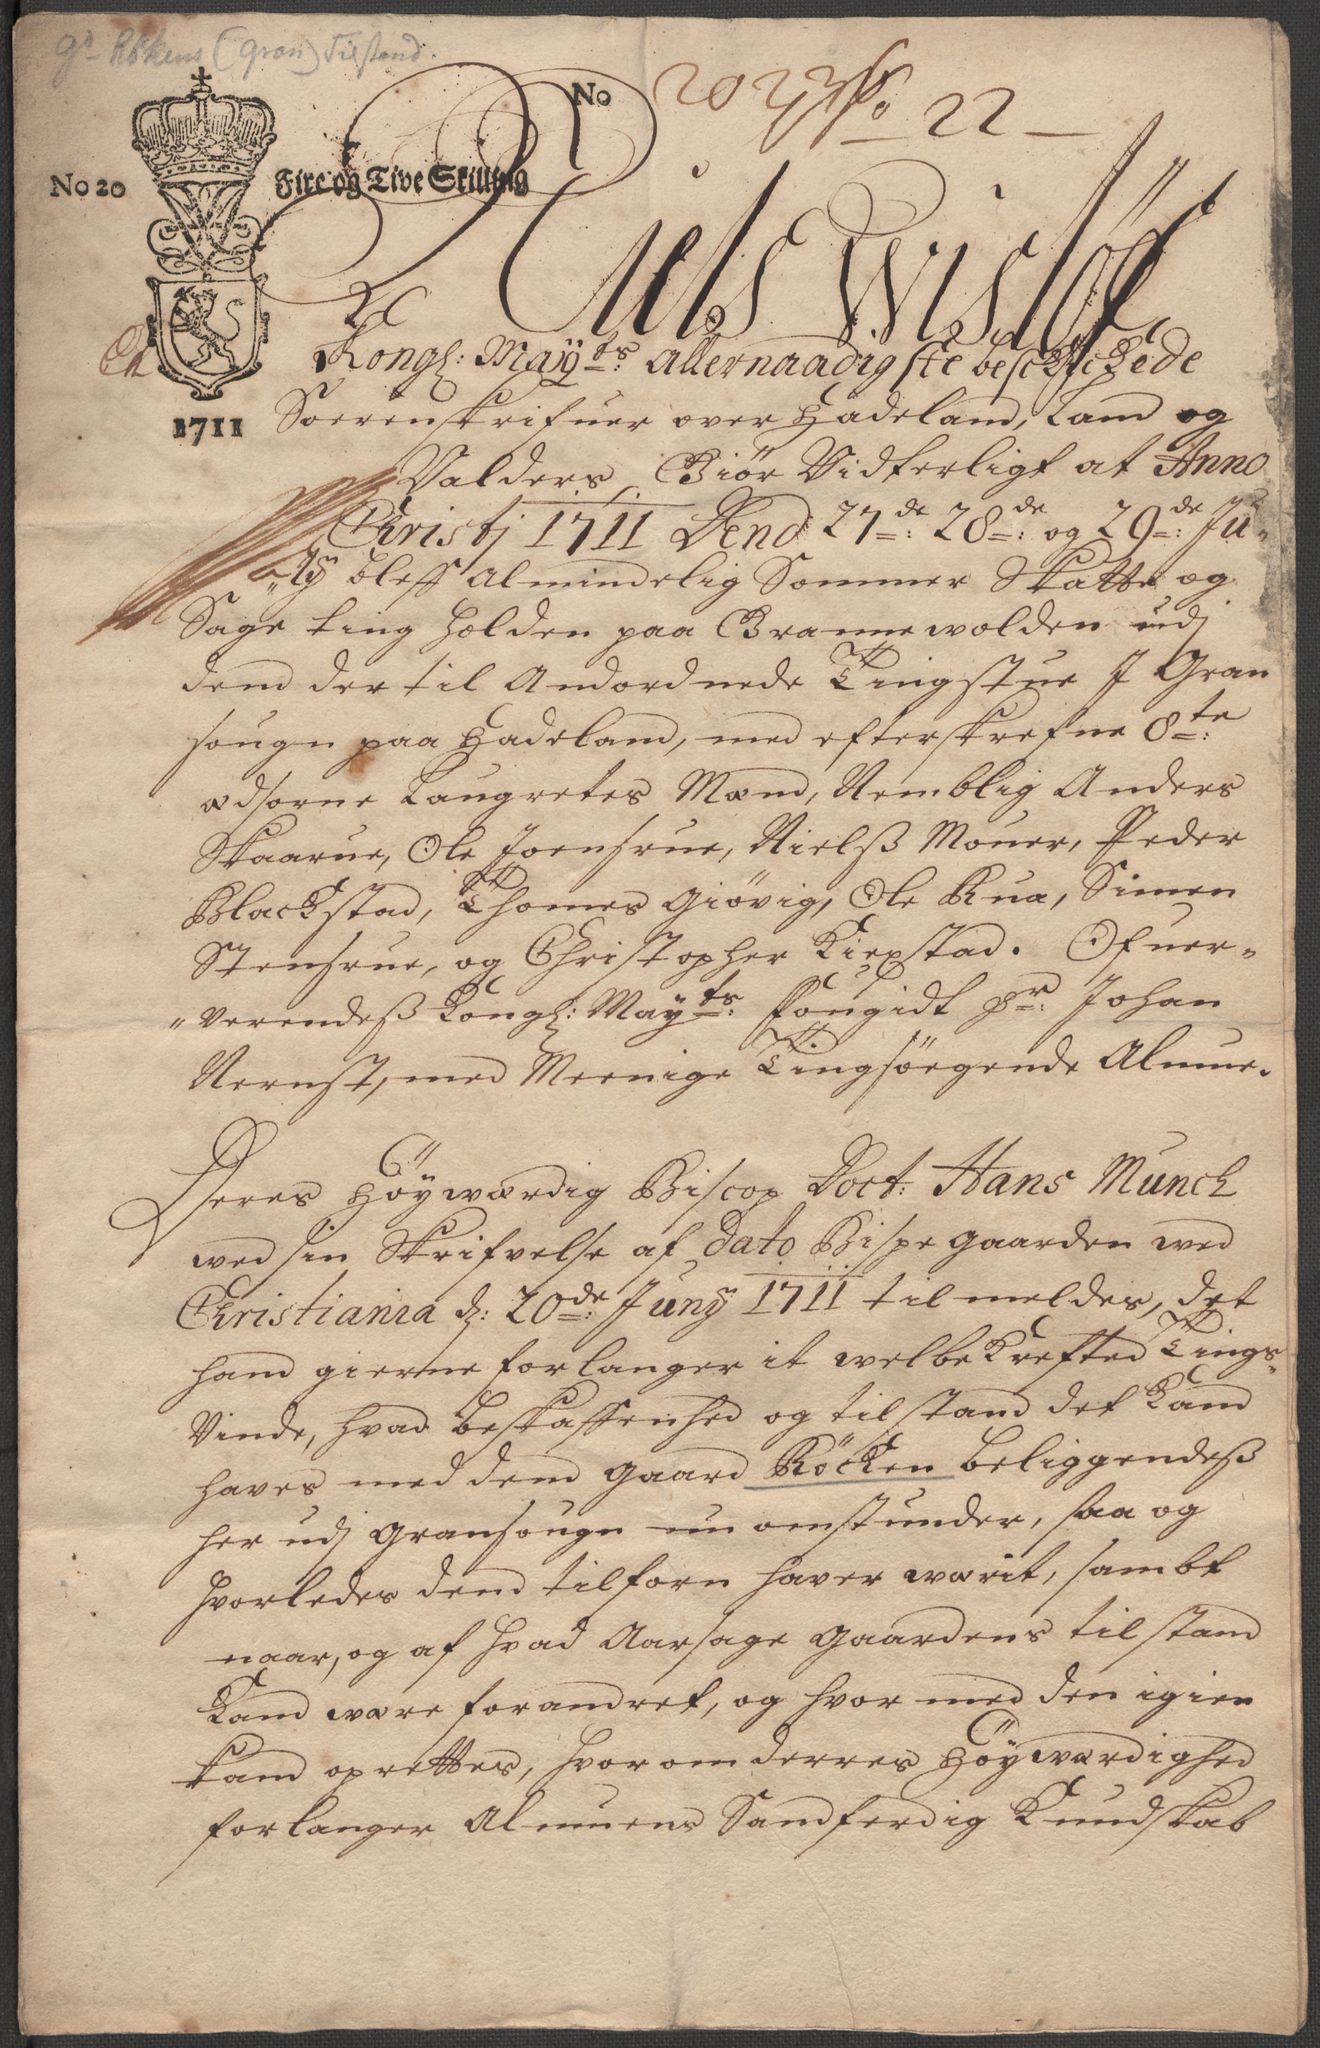 gd. Röken (Gran) Tilstand.
No
No 20
Fire og Tive Skilling
22
1711
Niels Wisløf
Kongl: Mayts: Allernaadigste beschickede
Sorenskrifuer over Hadeland, Land og
Valders, Giör Vidterligt at Anno
Christj 1711 Dend 27de: 28de: og 29de: Ju„
„ly bleff Almindelig Sommer Skatte og
Sage ting holden paa Grannewolden udj
dend der til Andordnede Tingstue J Gran
sougn paa Hadeland, med efterskrefne 8te:
ædsorne Laugretes Mænd, Nemblig Anders
Skaarue, Ole Joensrue, Nielß Mouer, Peder
Blackstad, Thomes Giövig, Ole Rua, Simen
Stensrue, og Christopher Kiexstad. Ofuer„
„verendeß Kongl: Mayts: Fougidt Hr: Johan
Nernst, med Meenige Tingsöegende Almue.
Deres Höyværdig Biscop Doct: Hans Munch
wed sin Skrifvelse af dato Bispegaarden wed
Christiania d: 20de: Juny 1711 tilmeldes, det
hand gierne forlanger it welbekrefted Tings„
Vinde, hvad beskaffenhed og tilstand det kand
haves med dend gaard Röcken beliggendeß
her udj Gransougn nu omstunder, saa og
hvorledes dend tilforn haver wærit, sambt
naar, og af hvad Aarsage gaardens tilstand
kand være forandret, og hvor med den igien
kand oprettes, hvorom derres Höyværdighed
forlanger Almuens Sandferdig Kundskab